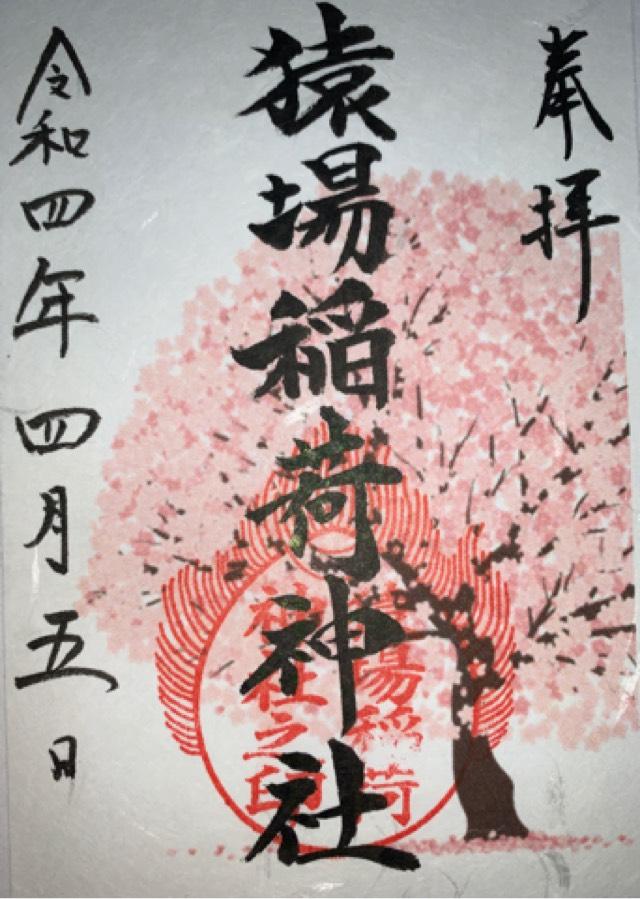 奉拝
猿場稲荷神社
猿場稲荷
神社之印
令和四年四月五日